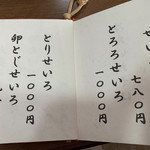 せい
七八〇円
とろろせいろ
一〇〇〇円
とりせいろ
一〇〇〇円
卵とじせいろ